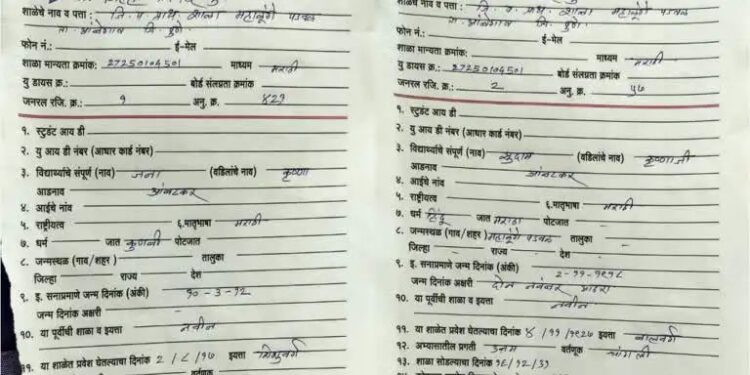 शाळेचे नाव व पत्ता : जि. प. प्राथ. शाळा महाळुंगे पडवळ
फोन नं.: ई-मेल
शाळा मान्यता क्रमांक: 27250104501 माध्यम मराठी
यु डायस क्र.: बोर्ड संलग्नता क्रमांक:
जनरल रजि. क्र.: १ अनु. क्र. ४२१
१. स्टुडंट आय डी
२. यु आय डी नंबर (आधार कार्ड नंबर)
३. विद्यार्थ्याचे संपूर्ण (नाव) जना (वडिलांचे नाव) कृष्णा
आडनाव आंबटकर
४. आईचे नांव
५. राष्ट्रीयत्व ६.मातृभाषा मराठी
७. धर्म जात कुणबी पोटजात
८. जन्मस्थळ (गाव/शहर) तालुका
जिल्हा राज्य देश
९. इ. सनाप्रमाणे जन्म दिनांक (अंकी) १०-३-१२
जन्म दिनांक अक्षरी
१०. या पूर्वीची शाळा व इयत्ता नवीन
११. या शाळेत प्रवेश घेतल्याचा दिनांक २/८/१७ इयत्ता शिशुवर्ग
शाळेचे नाव व पत्ता : जि. प. प्राथ. शाळा महाळुंगे पडवळ
ता. आंबेगाव जि. पुणे
फोन नं.: ई-मेल
शाळा मान्यता क्रमांक: 27250104501 माध्यम मराठी
यु डायस क्र.: बोर्ड संलग्नता क्रमांक:
जनरल रजि. क्र.: 2 अनु. क्र. ५७
१. स्टुडंट आय डी
२. यु आय डी नंबर (आधार कार्ड नंबर)
३. विद्यार्थ्याचे संपूर्ण (नाव) सुदाम (वडिलांचे नाव) कृष्णाजी
आडनाव आंबटकर
४. आईचे नांव
५. राष्ट्रीयत्व ६.मातृभाषा मराठी
७. धर्म हिंदू जात मराठा पोटजात
८. जन्मस्थळ (गाव/शहर) महाळुंगे पडवळ तालुका
जिल्हा राज्य देश
९. इ. सनाप्रमाणे जन्म दिनांक (अंकी) २-११-१९१८
जन्म दिनांक अक्षरी दोन नव्हेंबर अठरा
१०. या पूर्वीची शाळा व इयत्ता नवीन
११. या शाळेत प्रवेश घेतल्याचा दिनांक ४/११/१९२७ इयत्ता बालवर्ग
१२. अभ्यासातील प्रगती उत्तम वर्तणूक चांगली
१३. शाळा सोडल्याचा दिनांक १८/१२/३१